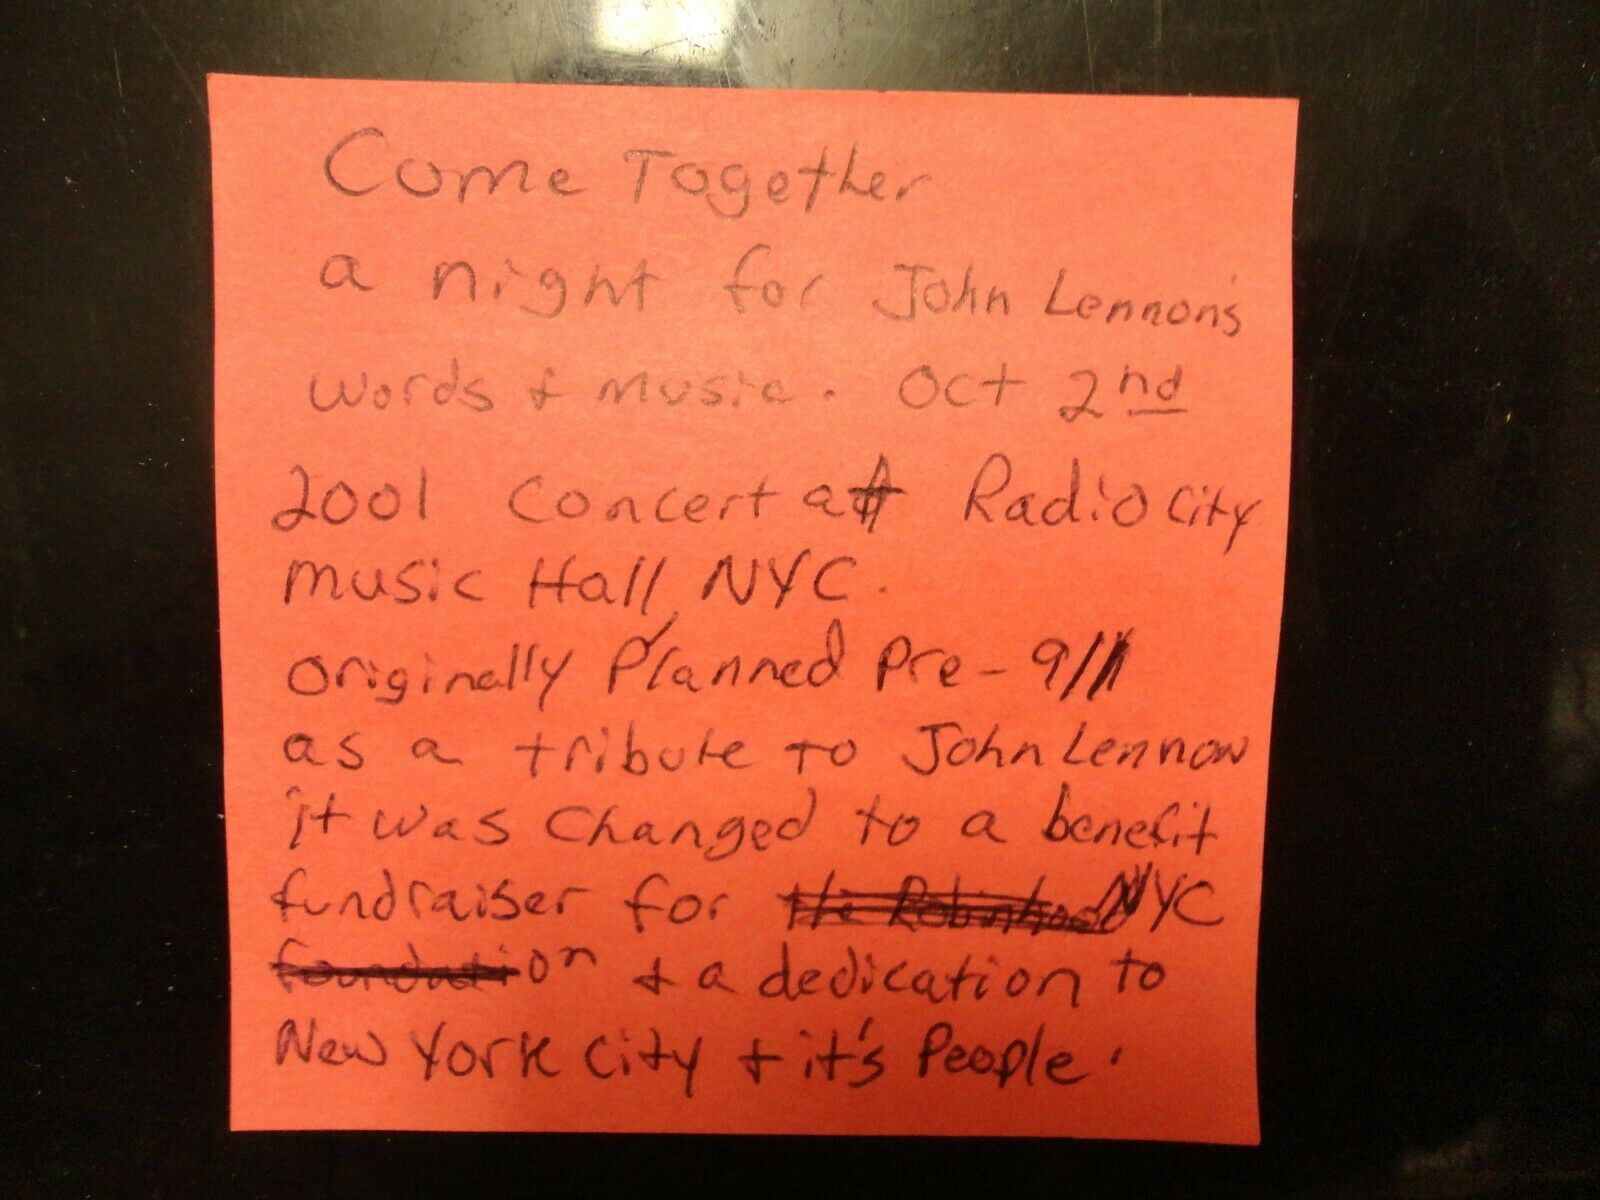 Come Together
a night for John Lennon's
words & music. Oct 2nd
2001 concert at Radio City
music Hall, NYC.
originally Planned pre-9/11
as a tribute to John Lennon
it was changed to a benefit
fundraiser for the Robinhood NYC
foundation & a dedication to
New York City & it's People.